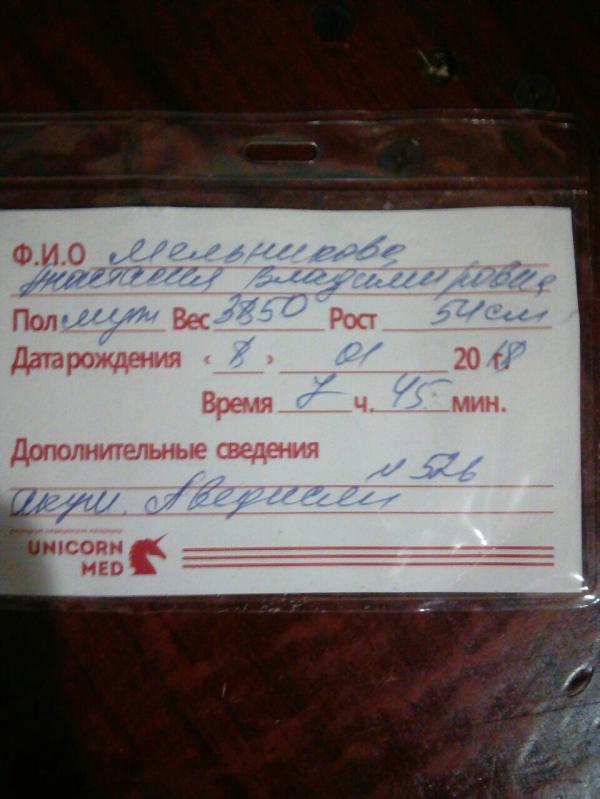 Ф.И.О Мельникова
Анастасия Владимировна
Пол муж Вес 3850 Рост 54 см
Дата рождения « 8 » 01 2018 г.
Время 7 ч. 45 мин.
Дополнительные сведения
N 526
акуш.
UNICORN
MED